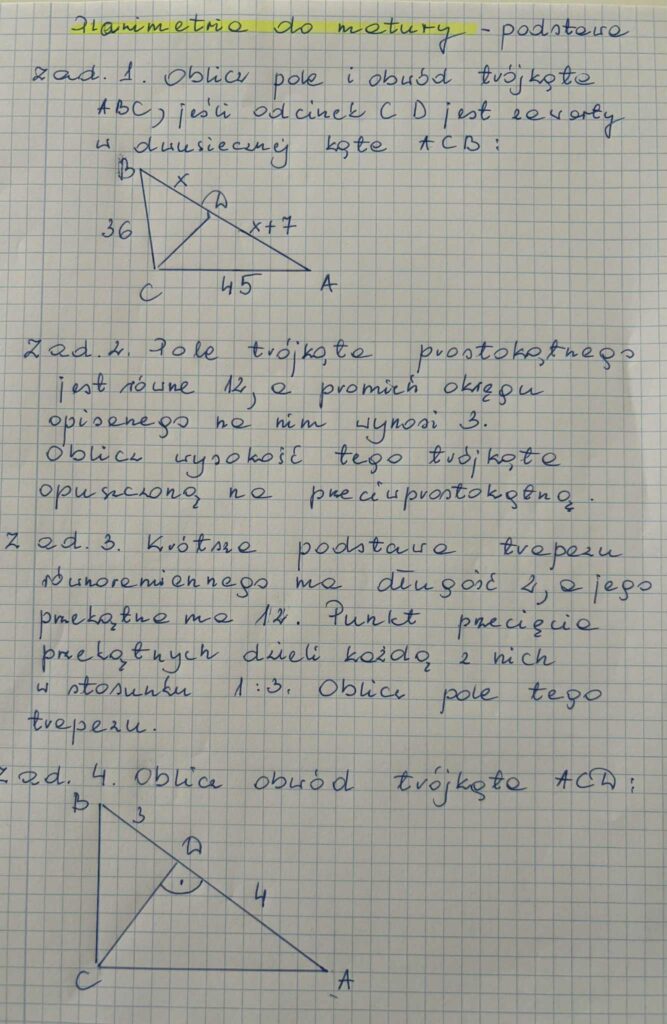 Planimetria do matury - podstawa
Zad. 1. Oblicz pole i obwód trójkąta
ABC, jeśli odcinek CD jest zawarty
w dwusiecznej kąta ACB:
B
x
D
36
x+7
C
45
A
Zad. 2. Pole trójkąta prostokątnego
jest równe 12, a promień okręgu
opisanego na nim wynosi 3.
Oblicz wysokość tego trójkąta
opuszczoną na przeciwprostokątną.
Zad. 3. Krótsza podstawa trapezu
równoramiennego ma długość 2, a jego
przekątna ma 12. Punkt przecięcia
przekątnych dzieli każdą z nich
w stosunku 1:3. Oblicz pole tego
trapezu.
Zad. 4. Oblicz obwód trójkąta ACD:
B
3
D
4
C
A